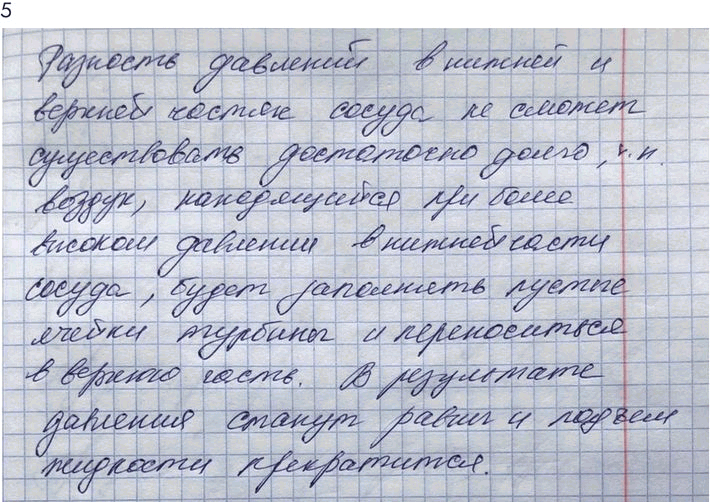 5
Разность давлений в нижней и
верхней частях сосуда не сможет
существовать достаточно долго, т.к.
воздух, находящийся при более
высоком давлении в нижней части
сосуда, будет заполнять пустые
ячейки турбины и переноситься
в верхнюю часть. В результате
давления станут равны и подъем
жидкости прекратится.